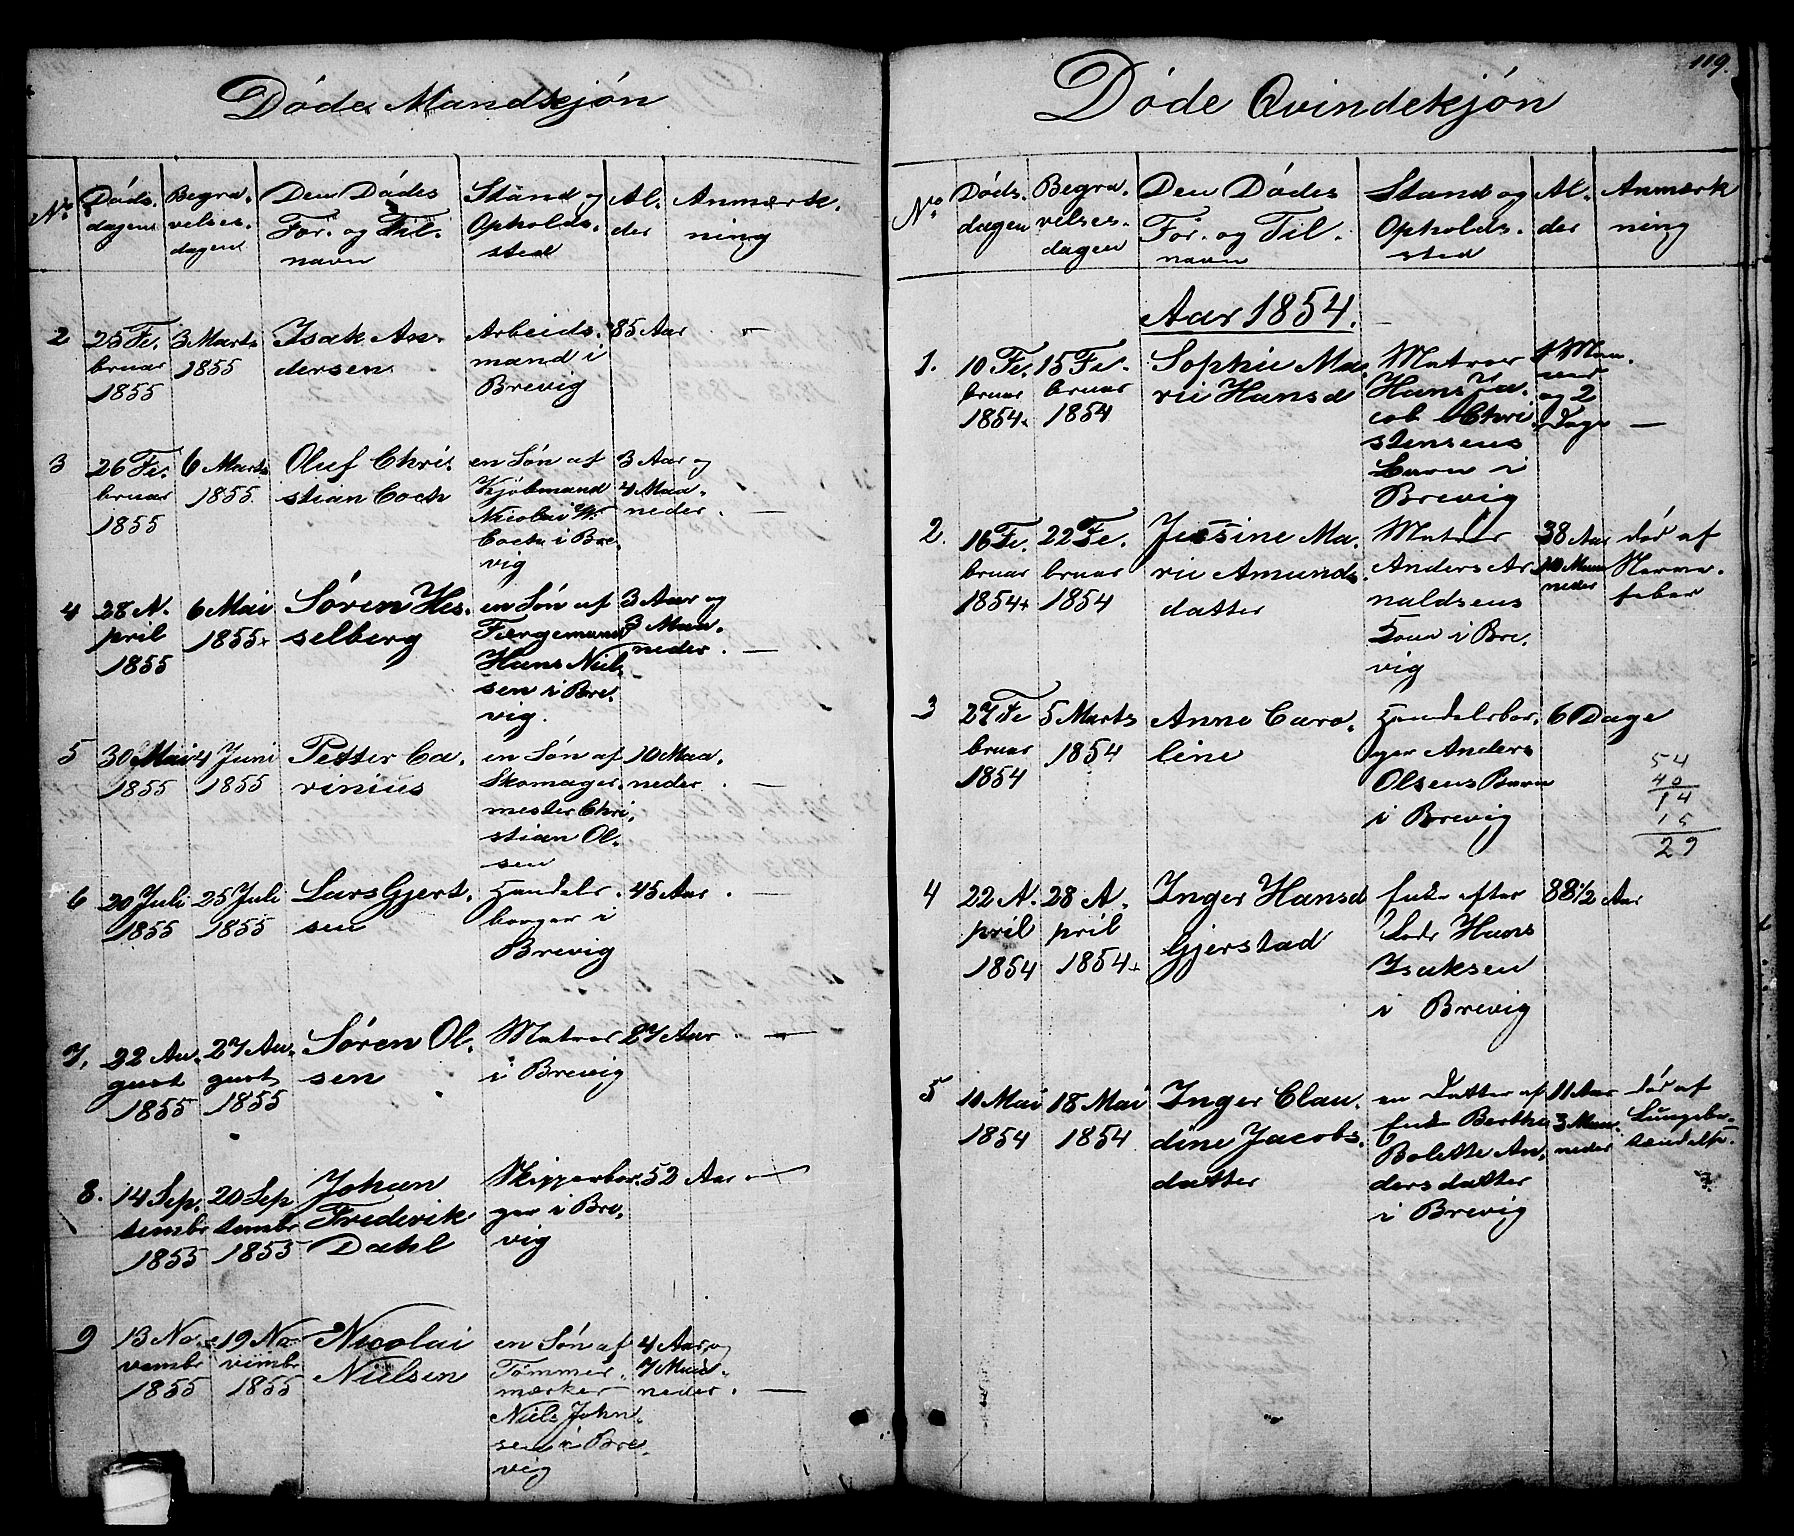 Døde Mandskjøn
No
Døds.
dagen
Begra.
velses.
dagen
Den Dødes
For. og Til.
navn
Stand og
Opholds.
sted
Al.
der
Anmærk.
ning
2
25 Fe.
bruar
1855
3 Marts
1855
Isak An.
dersen
Arbeids.
mand i
Brevig
85 Aar
3
26 Fe.
bruar
1855
6 Marts
1855
Oluf Chri.
stian Coch
en Søn af
Kjøbmand
Nicolai W.
Coch i Bre.
vig
3 Aar og
4 Maa.
neder
4
28 A.
pril
1855
6 Mai
1855
Søren Hes.
selberg
en Søn af
Færgemand
Hans Niel.
sen i Bre.
vig.
3 Aar og
Maa.
neder
5
30 Mai
1855
4 Juni
1855
Petter Ca.
rinius
en Søn af
Skomager.
mester Chri.
stian Ol.
sen
10 Maa.
neder
6
20 Juli
1855
25 Juli
1855
Lars Gjert.
sen
Handels.
borger i
Brevig
45 Aar
7.
22 Au.
gust
1855
27 Au.
gust
1855
Søren Ol.
sen
Matros
i Brevig
27 Aar
8.
14 Sep.
tembr
1855
20 Sep
tembr
1855
Johan
Frederik
Dahl
Skipperbor.
ger i Bre.
vig
52 Aar
9
13 No.
vembr
1855
19 No
vembr
1855
Nicolai
Nielsen
en Søn af
Tømmer.
mærker
Niels John.
sen i Bre.
vig
4 Aar og
7 Maa.
neder
119.
Døde Qvindekjøn
No
Døds.
dagen
Begra.
velses.
dagen
Den Dødes
For. og Til.
navn
Stand og
Opholds.
sted
Al.
der
Anmærk
ning
Aar 1854.
1.
10 Fe.
bruar
1854
15 Fe.
bruar
1854
Sophie Ma.
rie Hansd
Matros
Hans Ja.
cob Chri
stensens
Barn i
Brevig
Maa.
og 2
Dage
2.
16 Fe.
bruar
1854
22 Fe.
bruar
1854
Jessine Ma.
rie Amunds
datter
Matros
Anders Ar.
naldsens
Kone i Bre.
vig
38 Aar
10 Maa
neder
død af
Nerve.
feber
3
27 Fe
bruar
1854
5 Marts
1854
Anne Caro.
line
Handelsbor.
ger Anders
Olsens Barn
i Brevig
6 Dage
54
40
14
15
29
4
22 A.
pril
1854
28 A.
pril
1854
Inger Hansd
Gjerstad
Enke efter
Lods Hans
Isaksen
i Brevig
88 1/2 Aar
5
11 Mai
1854
18 Mai
1854
Inger Clau.
dine Jacobs.
datter
en Datter af
Enke Berthe
Bolette An.
dersdatter
i Brevig
11 Aar
3 Maa.
neder
død af
Lungebe.
tændelse.